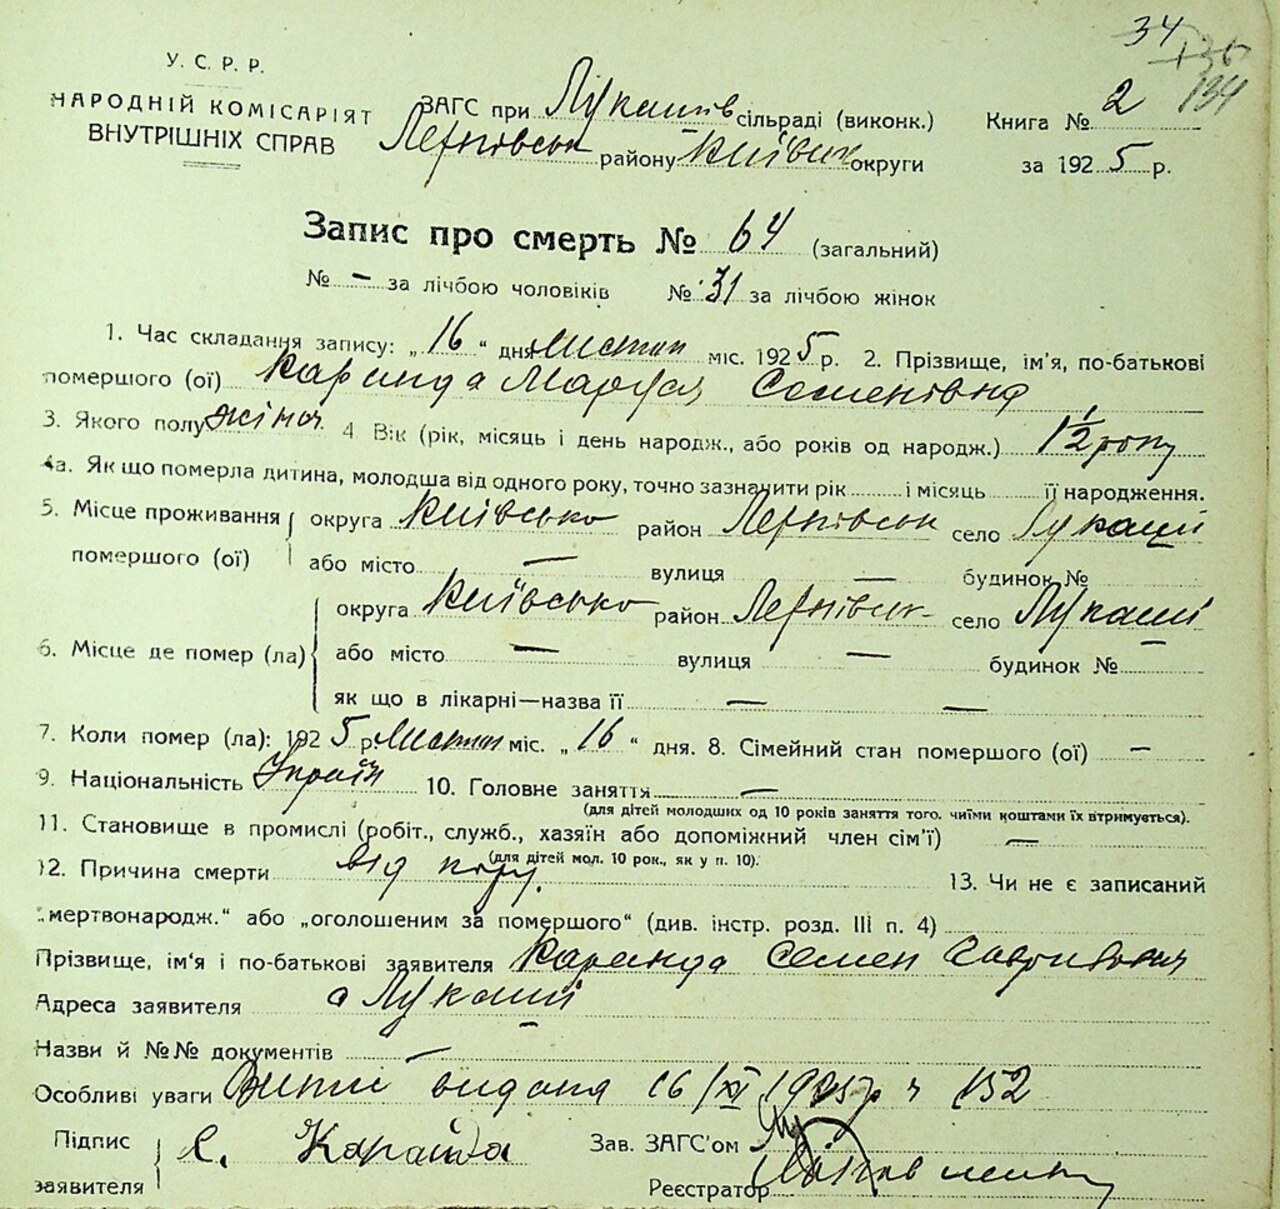 34
136
134
У. С. Р. Р.
НАРОДНІЙ КОМІСАРІЯТ
ВНУТРІШНІХ СПРАВ
ЗАГС при Лукашів сільраді (виконк.)
району Київськ округи
Книга № 2
за 1925 р.
Запис про смерть № 64 (загальний)
№ — за лічбою чоловіків № 31 за лічбою жінок
1. Час складання запису: „16“ дня листоп міс. 1925 р. 2. Прізвище, ім'я, по-батькові
помершого (ої) Каранда Маруся Семенівна
3. Якого полу жіноч. 4. Вік (рік, місяць і день народж., або років од народж.) 1½ року
4а. Як що померла дитина, молодша від одного року, точно зазначити рік і місяць її народження.
5. Місце проживання помершого (ої) округа Київсько район село Лукаші
або місто — вулиця — будинок №
6. Місце де помер (ла) округа Київсько район село Лукаші
або місто — вулиця — будинок №
як що в лікарні—назва її — —
7. Коли помер (ла): 1925 р. листоп міс. „16“ дня. 8. Сімейний стан помершого (ої) —
9. Національність Україн 10. Головне заняття —
(для дітей молодших од 10 років заняття того, чиїми коштами їх втримується).
11. Становище в промислі (робіт., служб., хазяїн або допоміжний член сім'ї) —
(для дітей мол. 10 рок., як у п. 10).
12. Причина смерти від кору. 13. Чи не є записаний
„мертвонародж.“ або „оголошеним за помершого“ (див. інстр. розд. III п. 4)
Прізвище, ім'я і по-батькові заявителя Каранда Семен
Адреса заявителя с Лукаші
Назви й №№ документів —
Особливі уваги видана 16/XI 1925 р ч 152
Підпис заявителя С. Каранда
Зав. ЗАГС'ом
Реєстратор